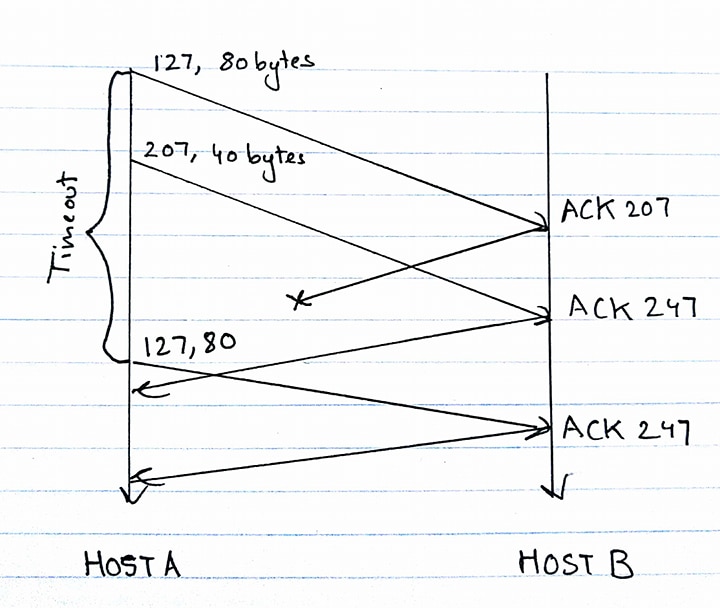 127, 80 bytes
207, 40 bytes
Timeout
ACK 207
ACK 247
127, 80
ACK 247
HOST A
HOST B